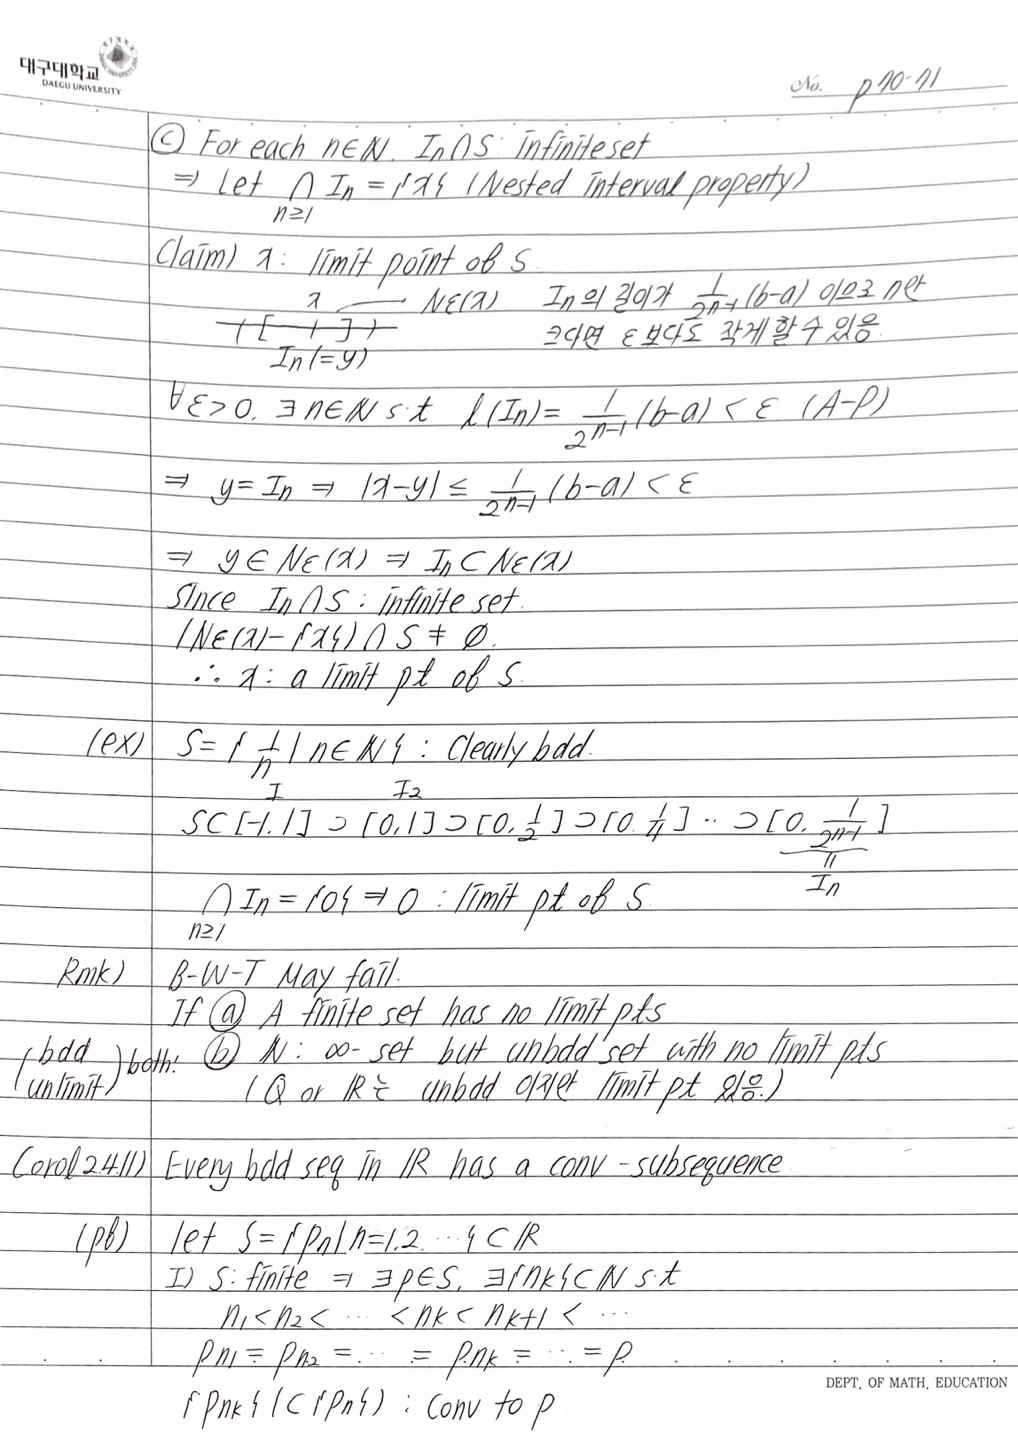 대구대학교
DAEGU UNIVERSITY
No. p70-71
ⓒ For each n∈ℕ. In∩S: infinite set
⇒ Let ∩ In = {x} (Nested interval property)
n≥1
Claim) x: limit point of S.
x Nε(x) In의 길이가 1/2ⁿ⁻¹(b-a) 이므로 n만
In(=y) 크다면 ε보다도 작게 할 수 있음.
∀ε>0. ∃n∈ℕ s.t l(In)= 1/2ⁿ⁻¹(b-a) < ε (A-P)
⇒ y=In ⇒ |x-y| ≤ 1/2ⁿ⁻¹(b-a) < ε
⇒ y∈Nε(x) ⇒ In⊂Nε(x)
Since In∩S: infinite set.
(Nε(x)-{x})∩S ≠ ∅.
∴ x: a limit pt of S.
(ex) S={1/n | n∈ℕ}: Clearly bdd.
I I2
S⊂[-1.1]⊃[0,1]⊃[0.1/2]⊃[0.1/4]‥⊃[0. 1/2ⁿ⁻¹]
=
In
∩ In = {0} ⇒ 0: limit pt of S.
n≥1
Rmk) B-W-T May fail.
If ⓐ A finite set has no limit pts
(bdd unlimit) both! ⓑ ℕ: ∞-set but unbdd set with no limit pts
(ℚ or ℝ는 unbdd 이지만 limit pt 있음.)
Corol 2.4.11) Every bdd seq in ℝ has a conv-subsequence
(pf) let S={pn|n=1.2. ⋯}⊂ℝ
I) S: finite ⇒ ∃p∈S, ∃{nk}⊂ℕ s.t
n1<n2< ⋯ <nk<nk+1< ⋯
pn1 = pn2 = ⋯ = pnk = ⋯ = p.
DEPT. OF MATH. EDUCATION
{pnk}(⊂{pn}): Conv to p